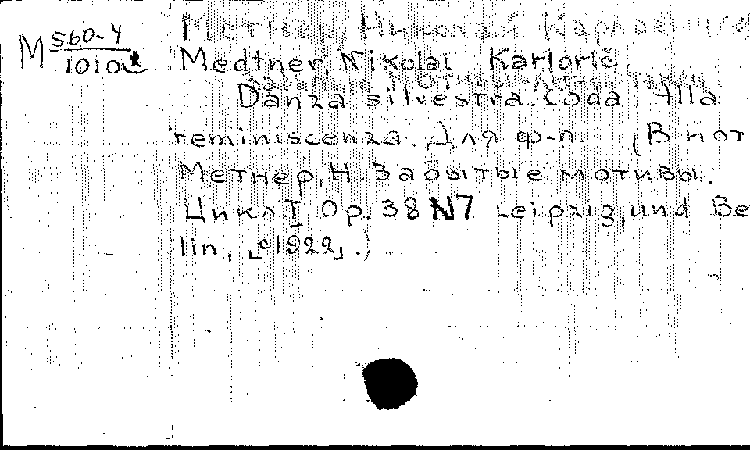 Метнер, Николай Карлович
М 560-4
Medtner, Nikolai Karlovič
1010
Danza silvestra. Coda Alla
reminiscenza. Для ф-п. (В нот
Метнер, Н. Забытые мотивы.
Цикл I Op. 38 N7 Leipzig, und Be
lin, [c1922].)